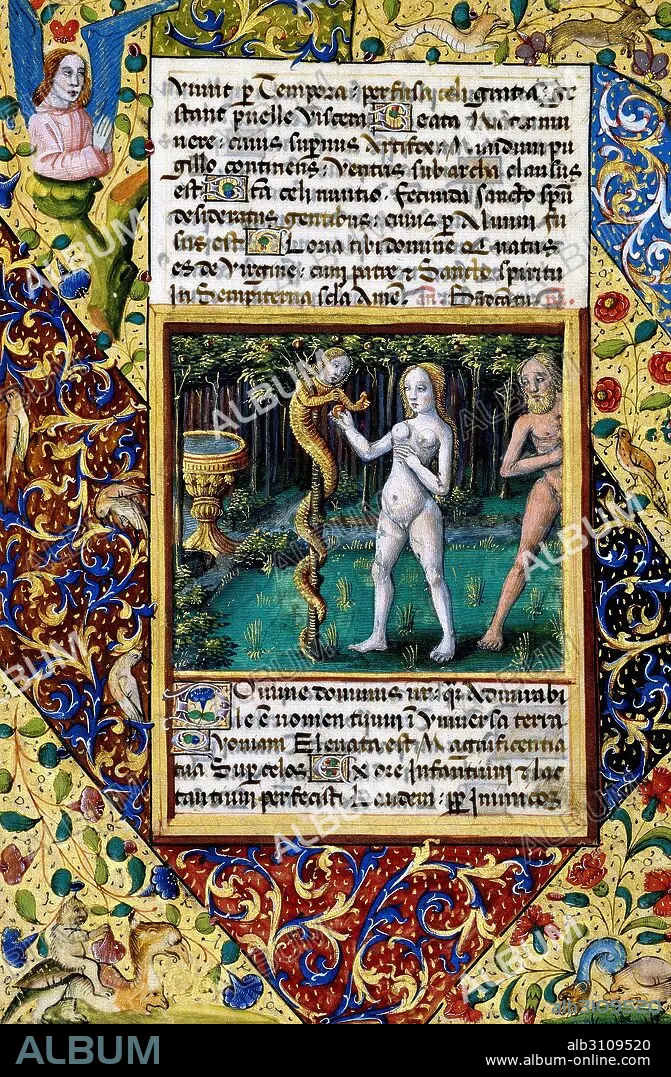 vivit p Tempora: perfusa celi gratia: ge
stant puelle viscera. Beata Mater mu
nere: cuius supernus Artifex: Mundum pu
gillo continens: Ventris sub archa clausus
est. Beata celi nuntio: fecunda sancto spiritu
desideratus gentibus: cuius p Alvum fu
sus est. Gloria tibi domine Qui natus
es de Virgine: cum patre & Sancto spiritu
In Sempiterna secula Amen.
Domine dominus nr: qz Admirabi
le e nomen tuum i Vniversa terra
Quoniam Elevata est Magnificentia
tua Super celos. Ex ore Infantium & lac
tantium perfecisti laudem: pp Inimicos
ALBUM
alb3109520
www.album-online.com